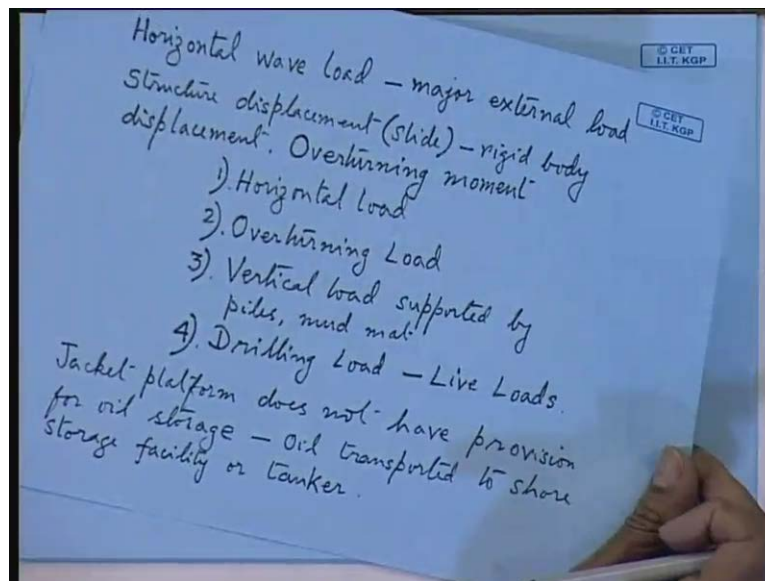 Horizontal wave load – major external load
Structure displacement (slide) – rigid body
displacement. Overturning moment
1). Horizontal load
2). Overturning Load
3). Vertical load supported by
piles, mud mat
4). Drilling Load – Live Loads.
Jacket platform does not have provision
for oil storage – Oil transported to shore
storage facility or tanker.
© CET
I.I.T. KGP
© CET
I.I.T. KGP